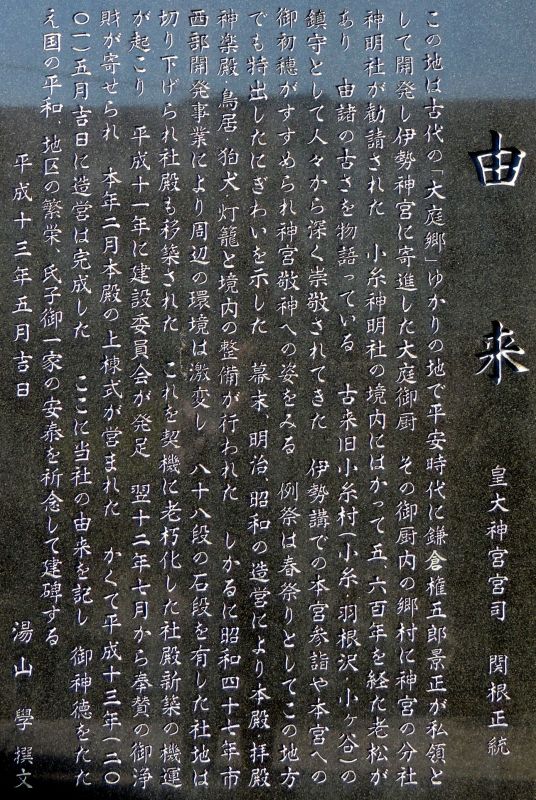 由来
皇大神宮宮司 関根正統
この地は古代の「大庭郷」ゆかりの地で平安時代に鎌倉権五郎景正が私領と
して開発し伊勢神宮に寄進した大庭御厨 その御厨内の郷村に神宮の分社
神明社が勧請された 小糸神明社の境内にはかって五、六百年を経た老松が
あり 由諸の古さを物語っている 古来旧小糸村(小糸・羽根沢・小ヶ谷)の
鎮守として人々から深く崇敬されてきた 伊勢講での本宮参詣や本宮への
御初穂がすすめられ神宮敬神への姿をみる 例祭は春祭りとしてこの地方
でも特出したにぎわいを示した 幕末、明治、昭和の造営により本殿・拝殿
神楽殿 鳥居 狛犬・灯籠と境内の整備が行われた しかるに昭和四十七年市
西部開発事業により周辺の環境は激変し 八十八段の石段を有した社地は
切り下げられ社殿も移築された これを契機に老朽化した社殿新築の機運
が起こり 平成十一年に建設委員会が発足 翌十二年七月から奉賛の御浄
財が寄せられ 本年二月本殿の上棟式が営まれた かくて平成十三年(二〇
〇一)五月吉日に造営は完成した ここに当社の由来を記し 御神徳をたた
え国の平和、地区の繁栄、氏子御一家の安泰を祈念して建碑する
平成十三年五月吉日
湯山學撰文